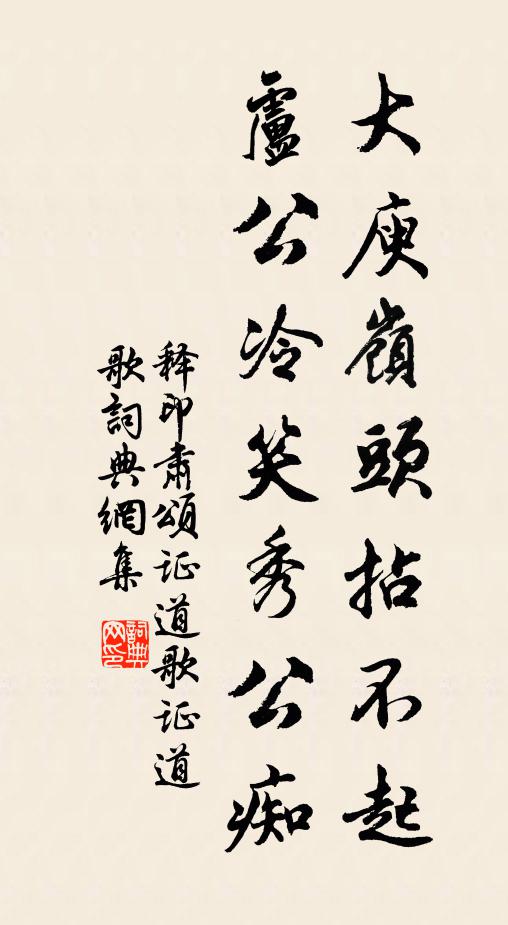 大庾嶺頭拈不起
盧公冷笑秀公痴
释印肃颂证道歌证道
歌詞典網集
詞典网印